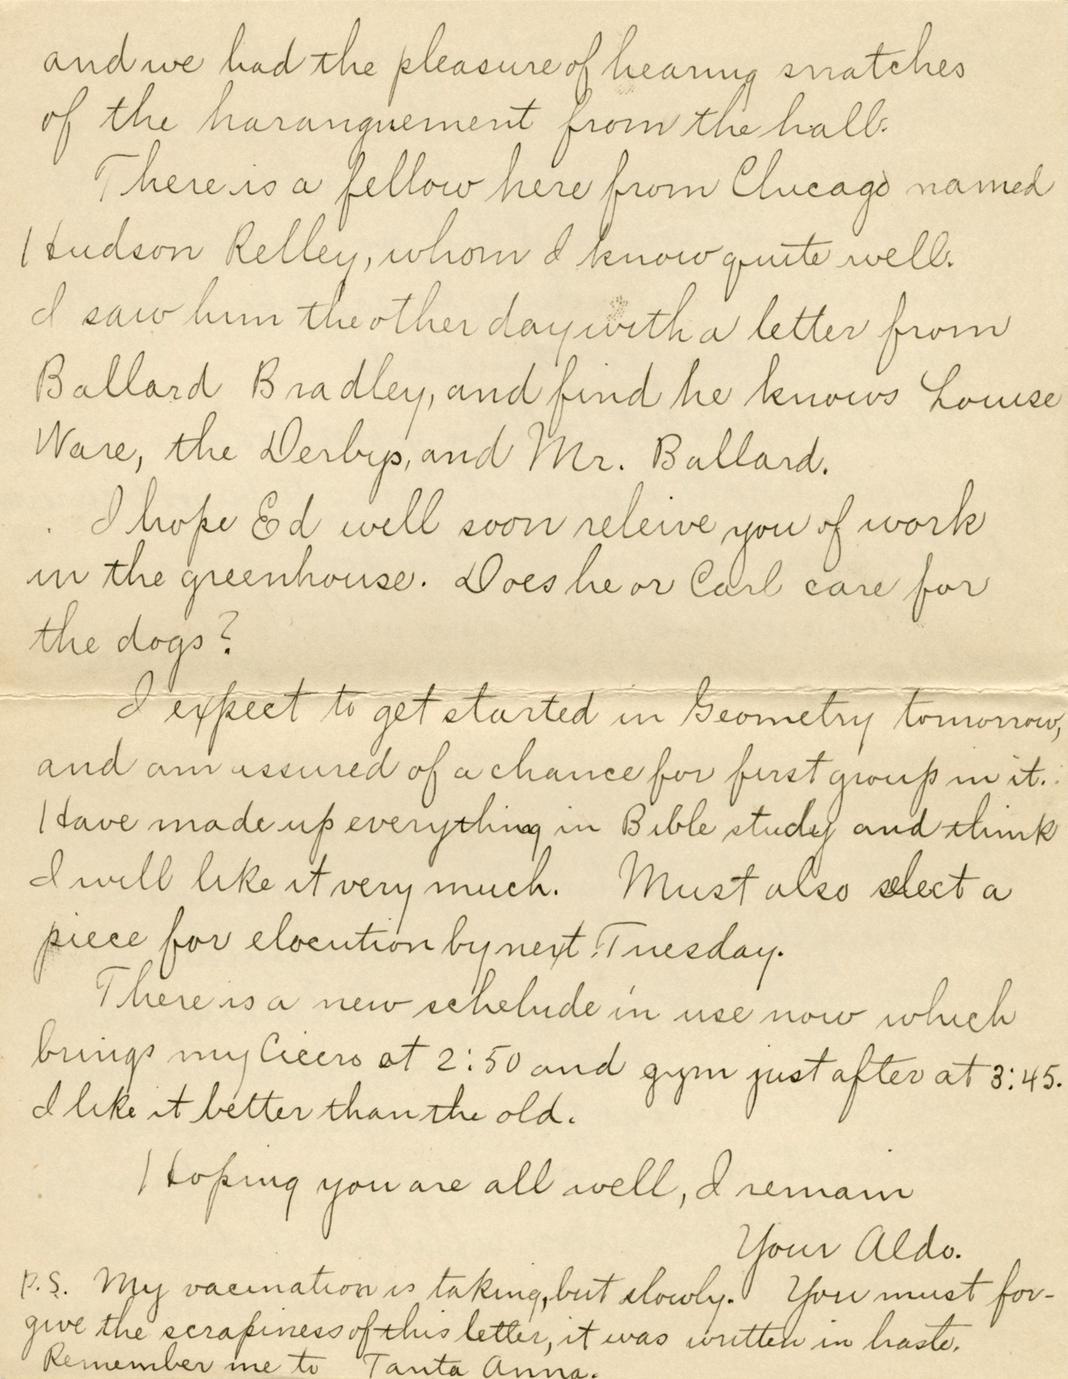 and we had the pleasure of hearing snatches
of the haranguement from the hall.
There is a fellow here from Chicago named
Hudson Kelley, whom I know quite well.
I saw him the other day with a letter from
Ballard Bradley, and find he knows Louise
Ware, the Derbys, and Mr. Ballard.
I hope Ed will soon releive you of work
in the greenhouse. Does he or Carl care for
the dogs?
I expect to get started in Geometry tomorrow,
and am assured of a chance for first group in it.
Have made up everything in Bible study and think
I will like it very much. Must also select a
piece for elocution by next Tuesday.
There is a new schelude in use now which
brings my Cicero at 2:50 and gym just after at 3:45.
I like it better than the old.
Hoping you are all well, I remain
Your Aldo.
P.S. My vacination is taking, but slowly. You must for-
give the scrapiness of this letter, it was written in haste.
Remember me to Tanta Anna.